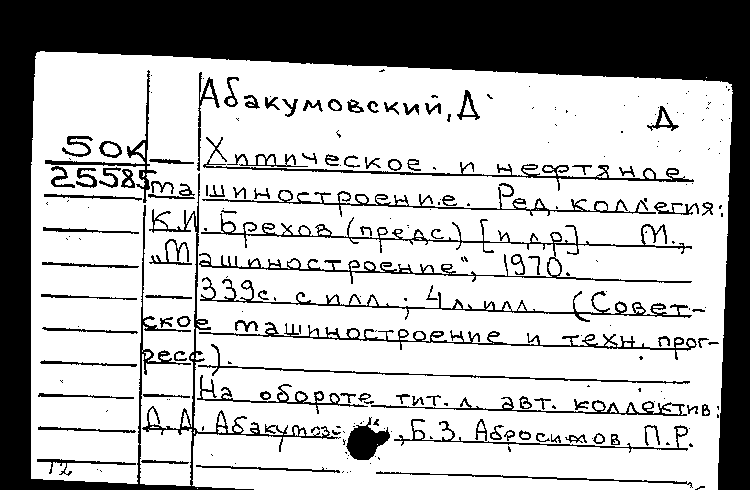 Абакумовский, Д
Д
50К
25585
Химическое и нефтяное
машиностроение. Ред. коллегия:
К.И. Брехов (предс.) [и др.]. М.,
"Машиностроение", 1970.
339с. с илл.; 4л. илл. (Совет-
ское машиностроение и техн. прог-
ресс).
На обороте тит. л. авт. коллектив:
Б.З. Абросимов, П.Р.
12